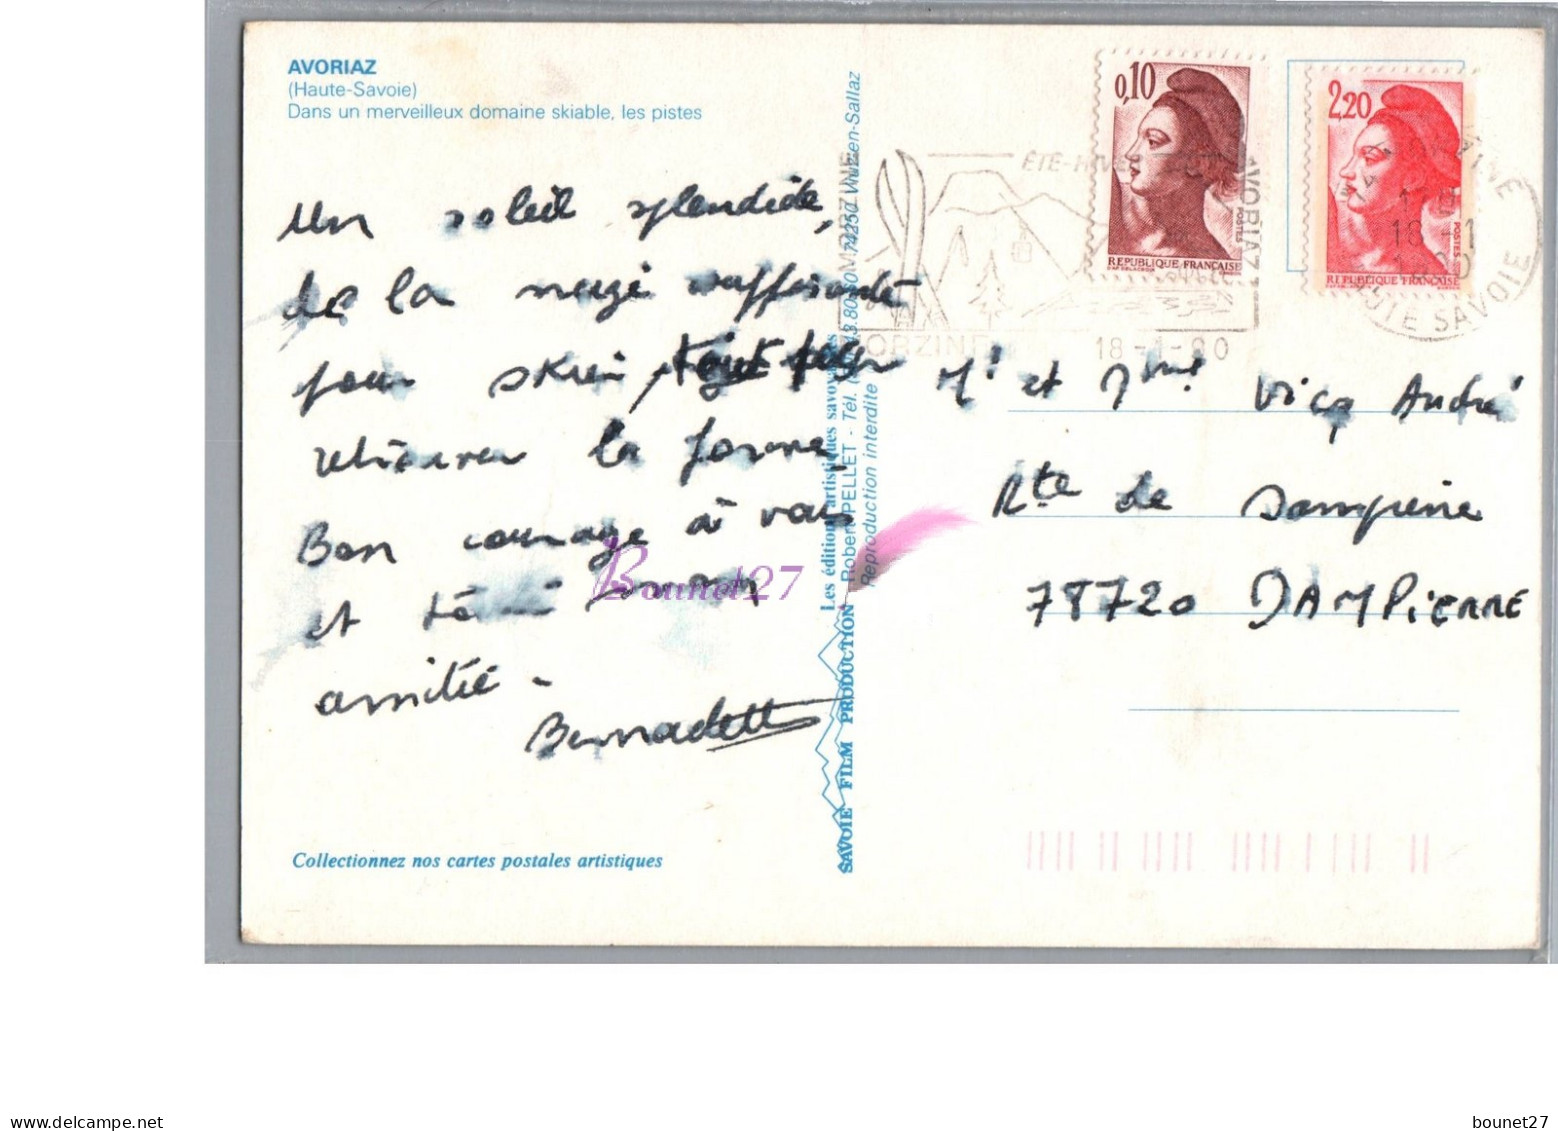 AVORIAZ
(Haute-Savoie)
Dans un merveilleux domaine skiable, les pistes
Un soleil splendide,
de la neige suffisante
pour skier, tout pour
retrouver la forme.
Bon courage à vous
et
amitié -
Bernadette
Collectionnez nos cartes postales artistiques
Les éditions artistiques savoyardes
SAVOIE FILM PRODUCTION Robert PELLET - Tél.
74250 Viuz-en-Sallaz
Reproduction interdite
Bounet27
0,10
REPUBLIQUE FRANÇAISE
POSTES
2,20
REPUBLIQUE FRANÇAISE
POSTES
ÉTÉ-HIVER
MORZINE
AVORIAZ
MORZINE
18-1-90
HAUTE SAVOIE
Mr et Mme Vicq André
Rte de Dampierre
78720 DAMPIERRE
delcampe.net
bounet27